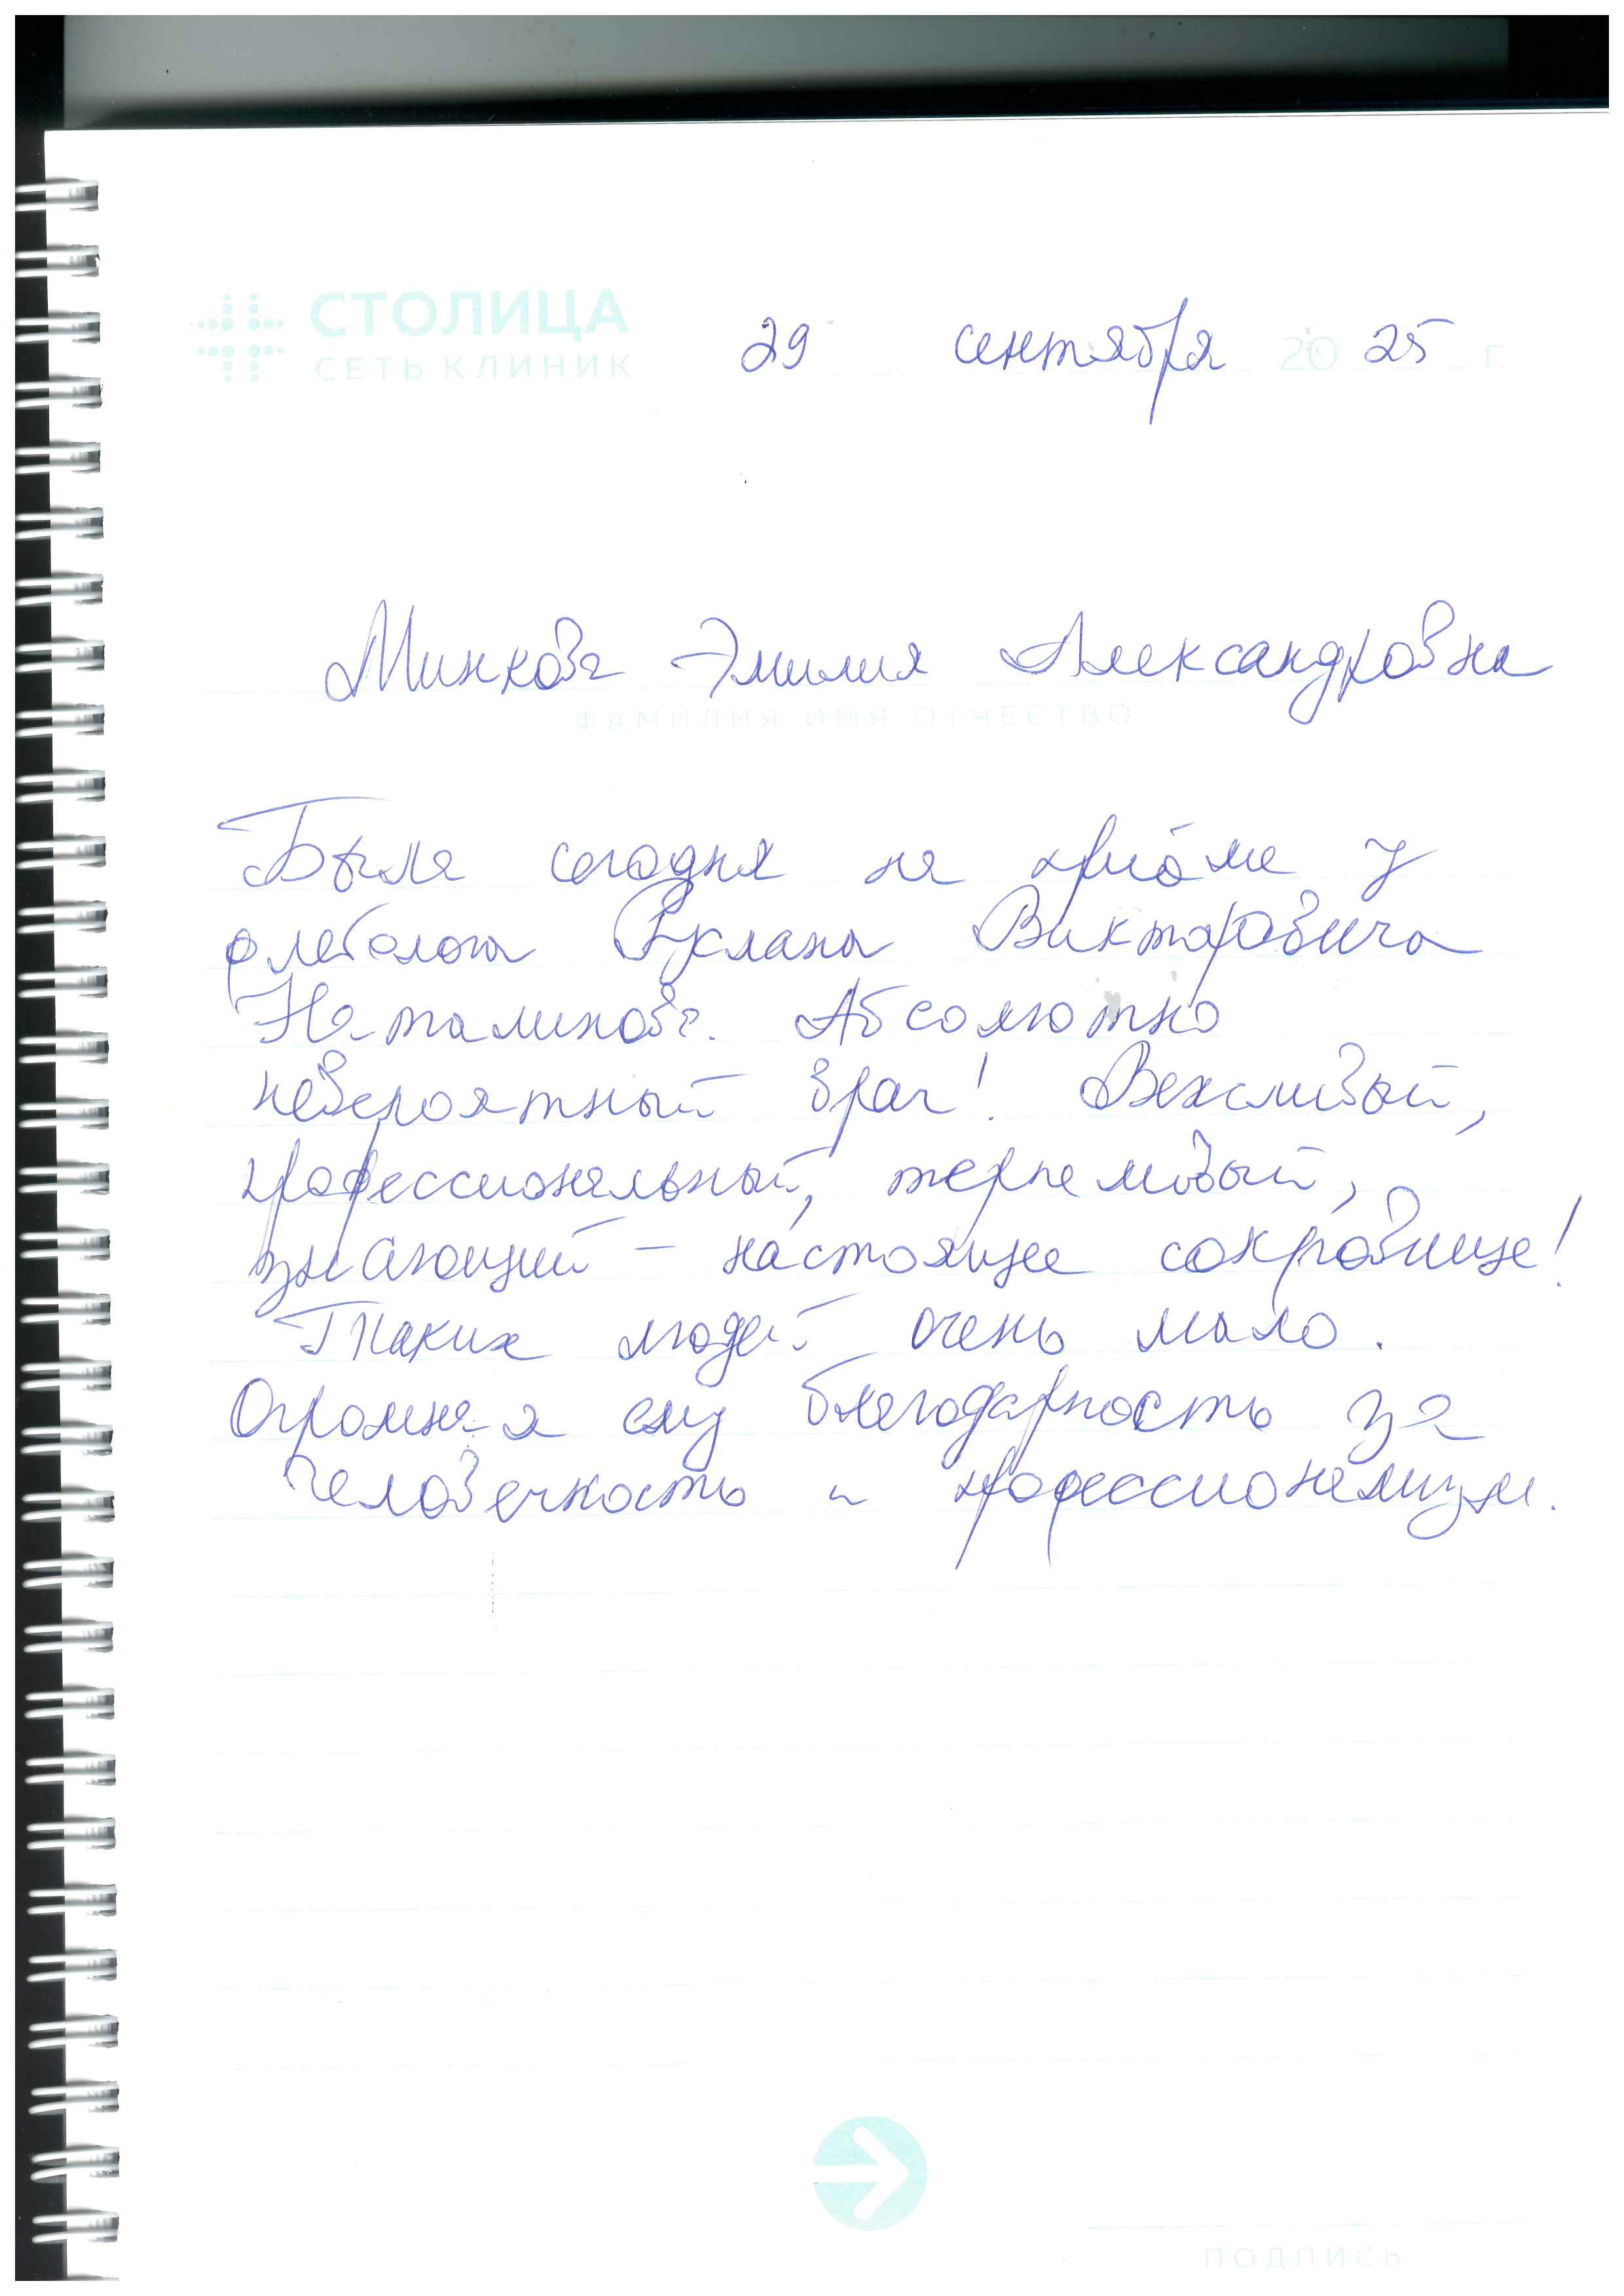 СТОЛИЦА
СЕТЬ КЛИНИК
29 сентября 2025 г.
Минкова Эмилия Александровна
ФАМИЛИЯ ИМЯ ОТЧЕСТВО
Была сегодня на приёме у
флеболога Руслана Викторовича
Наталинова. Абсолютно
невероятный врач! Вежливый,
профессиональный, терпеливый,
знающий – настоящее сокровище!
Таких людей очень мало.
Огромная ему благодарность за
человечность и профессионализм.
ПОДПИСЬ